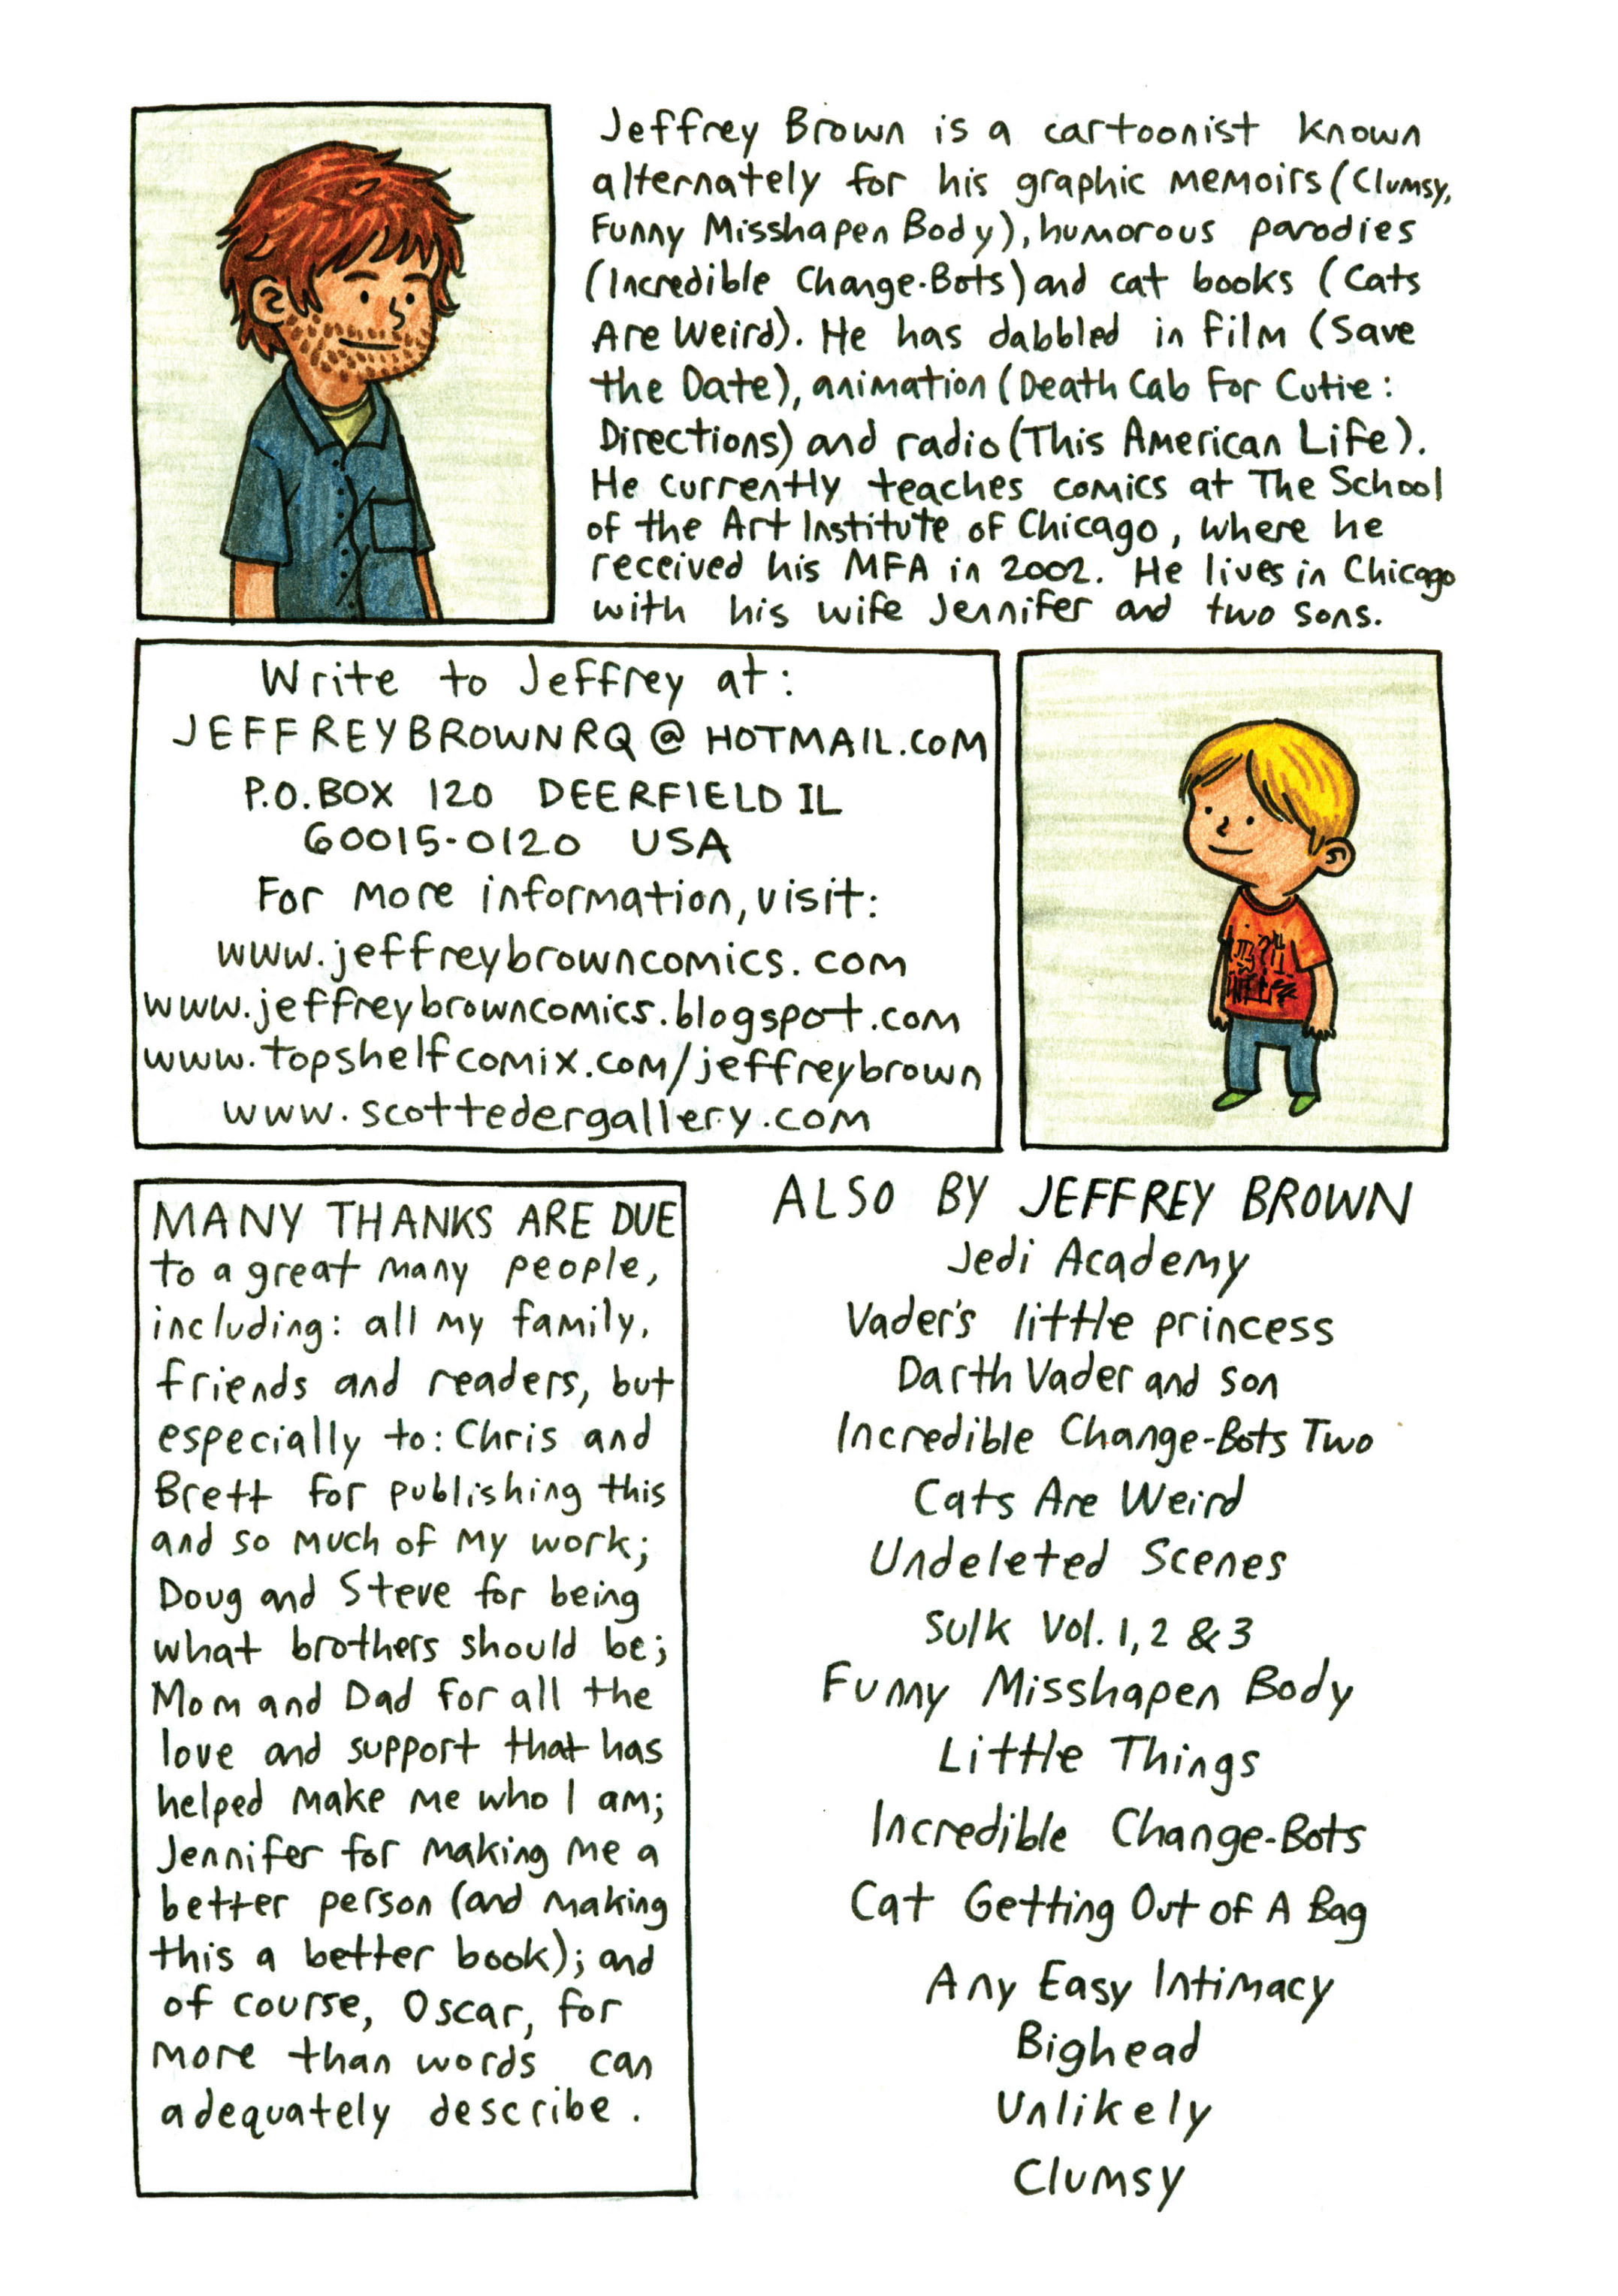 Jeffrey Brown is a cartoonist known
alternately for his graphic memoirs (Clumsy,
Funny Misshapen Body), humorous parodies
(Incredible Change-Bots) and cat books (Cats
Are Weird). He has dabbled in film (Save
the Date), animation (Death Cab For Cutie:
Directions) and radio (This American Life).
He currently teaches comics at The School
of the Art Institute of Chicago, where he
received his MFA in 2002. He lives in Chicago
with his wife Jennifer and two sons.
Write to Jeffrey at:
JEFFREYBROWNRQ@HOTMAIL.COM
P.O.BOX 120 DEERFIELD IL
60015-0120 USA
For more information, visit:
www.jeffreybrowncomics.com
www.jeffreybrowncomics.blogspot.com
www.topshelfcomix.com/jeffreybrown
www.scottedergallery.com
MANY THANKS ARE DUE
to a great many people,
including: all my family,
friends and readers, but
especially to: Chris and
Brett for publishing this
and so much of my work;
Doug and Steve for being
what brothers should be;
Mom and Dad for all the
love and support that has
helped make me who I am;
Jennifer for making me a
better person (and making
this a better book); and
of course, Oscar, for
more than words can
adequately describe.
ALSO BY JEFFREY BROWN
Jedi Academy
Vader's little princess
Darth Vader and son
Incredible Change-Bots Two
Cats Are Weird
Undeleted Scenes
Sulk Vol. 1, 2 & 3
Funny Misshapen Body
Little Things
Incredible Change-Bots
Cat Getting Out of A Bag
Any Easy Intimacy
Bighead
Unlikely
Clumsy